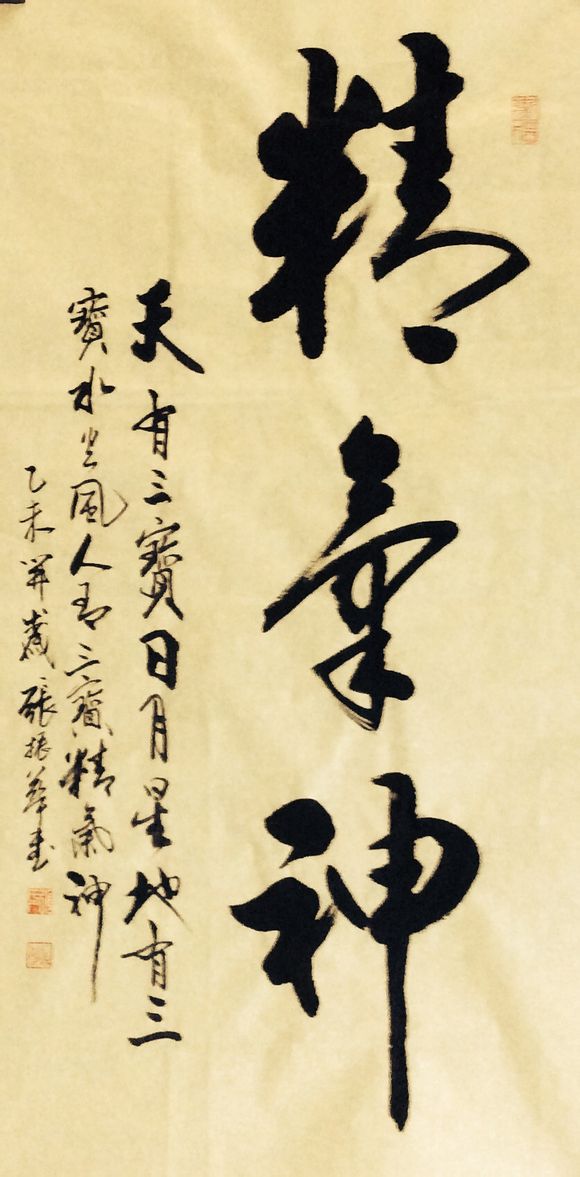 精氣神
天有三寶日月星地有三
寶水火風人有三寶精氣神
乙未羊歲張振華書